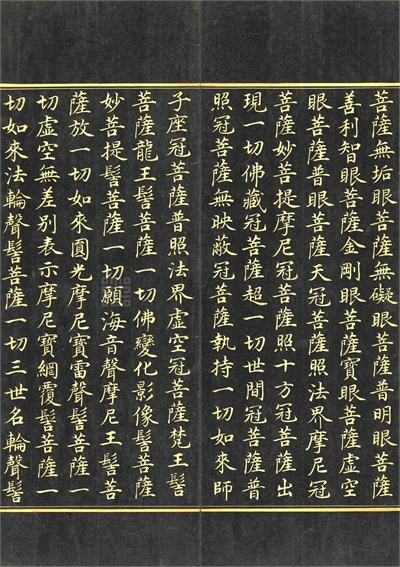 菩薩無垢眼菩薩無礙眼菩薩普明眼菩薩
善利智眼菩薩金剛眼菩薩寶眼菩薩虛空
眼菩薩普眼菩薩天冠菩薩照法界摩尼冠
菩薩妙菩提摩尼冠菩薩照十方冠菩薩出
現一切佛藏冠菩薩超一切世間冠菩薩普
照冠菩薩無映蔽冠菩薩執持一切如來師
子座冠菩薩普照法界虛空冠菩薩梵王髻
菩薩龍王髻菩薩一切佛變化影像髻菩薩
妙菩提髻菩薩一切願海音聲摩尼王髻菩
薩放一切如來圓光摩尼寶雷聲髻菩薩一
切虛空無差別表示摩尼寶網覆髻菩薩一
切如來法輪聲髻菩薩一切三世名輪聲髻